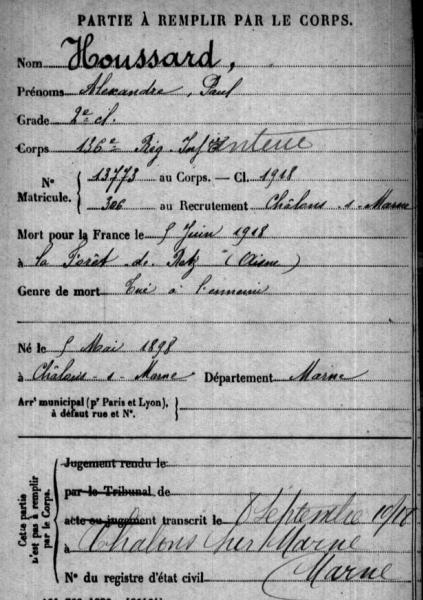 PARTIE À REMPLIR PAR LE CORPS.
Nom Houssard,
Prénoms Alexandre, Paul
Grade 2e cl.
Corps 136e Rég. Infanterie
Nº Matricule. 13773 au Corps. — Cl. 1918
306 au Recrutement Châlons-s-Marne
Mort pour la France le 5 Juin 1918
à la Forêt de Retz (Aisne)
Genre de mort Tué à l'ennemi
Né le 5 Mai 1898
à Châlons-s-Marne Département Marne
Arrt municipal (pr Paris et Lyon),
à défaut rue et Nº.
Cette partie n'est pas à remplir par le Corps.
Jugement rendu le
par le Tribunal de
acte ou jugement transcrit le 8 Septembre 1918
à Chalons sur Marne
Marne
Nº du registre d'état civil